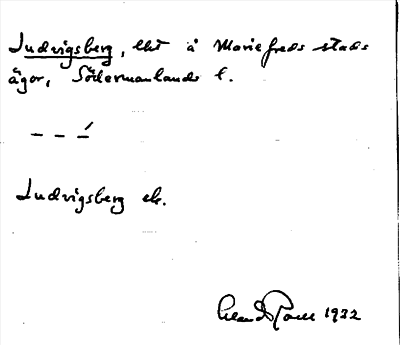 Ludvigsberg, lht å Mariefreds stads
ägor, Södermanlands l.
– – –́
Ludvigsberg
1932